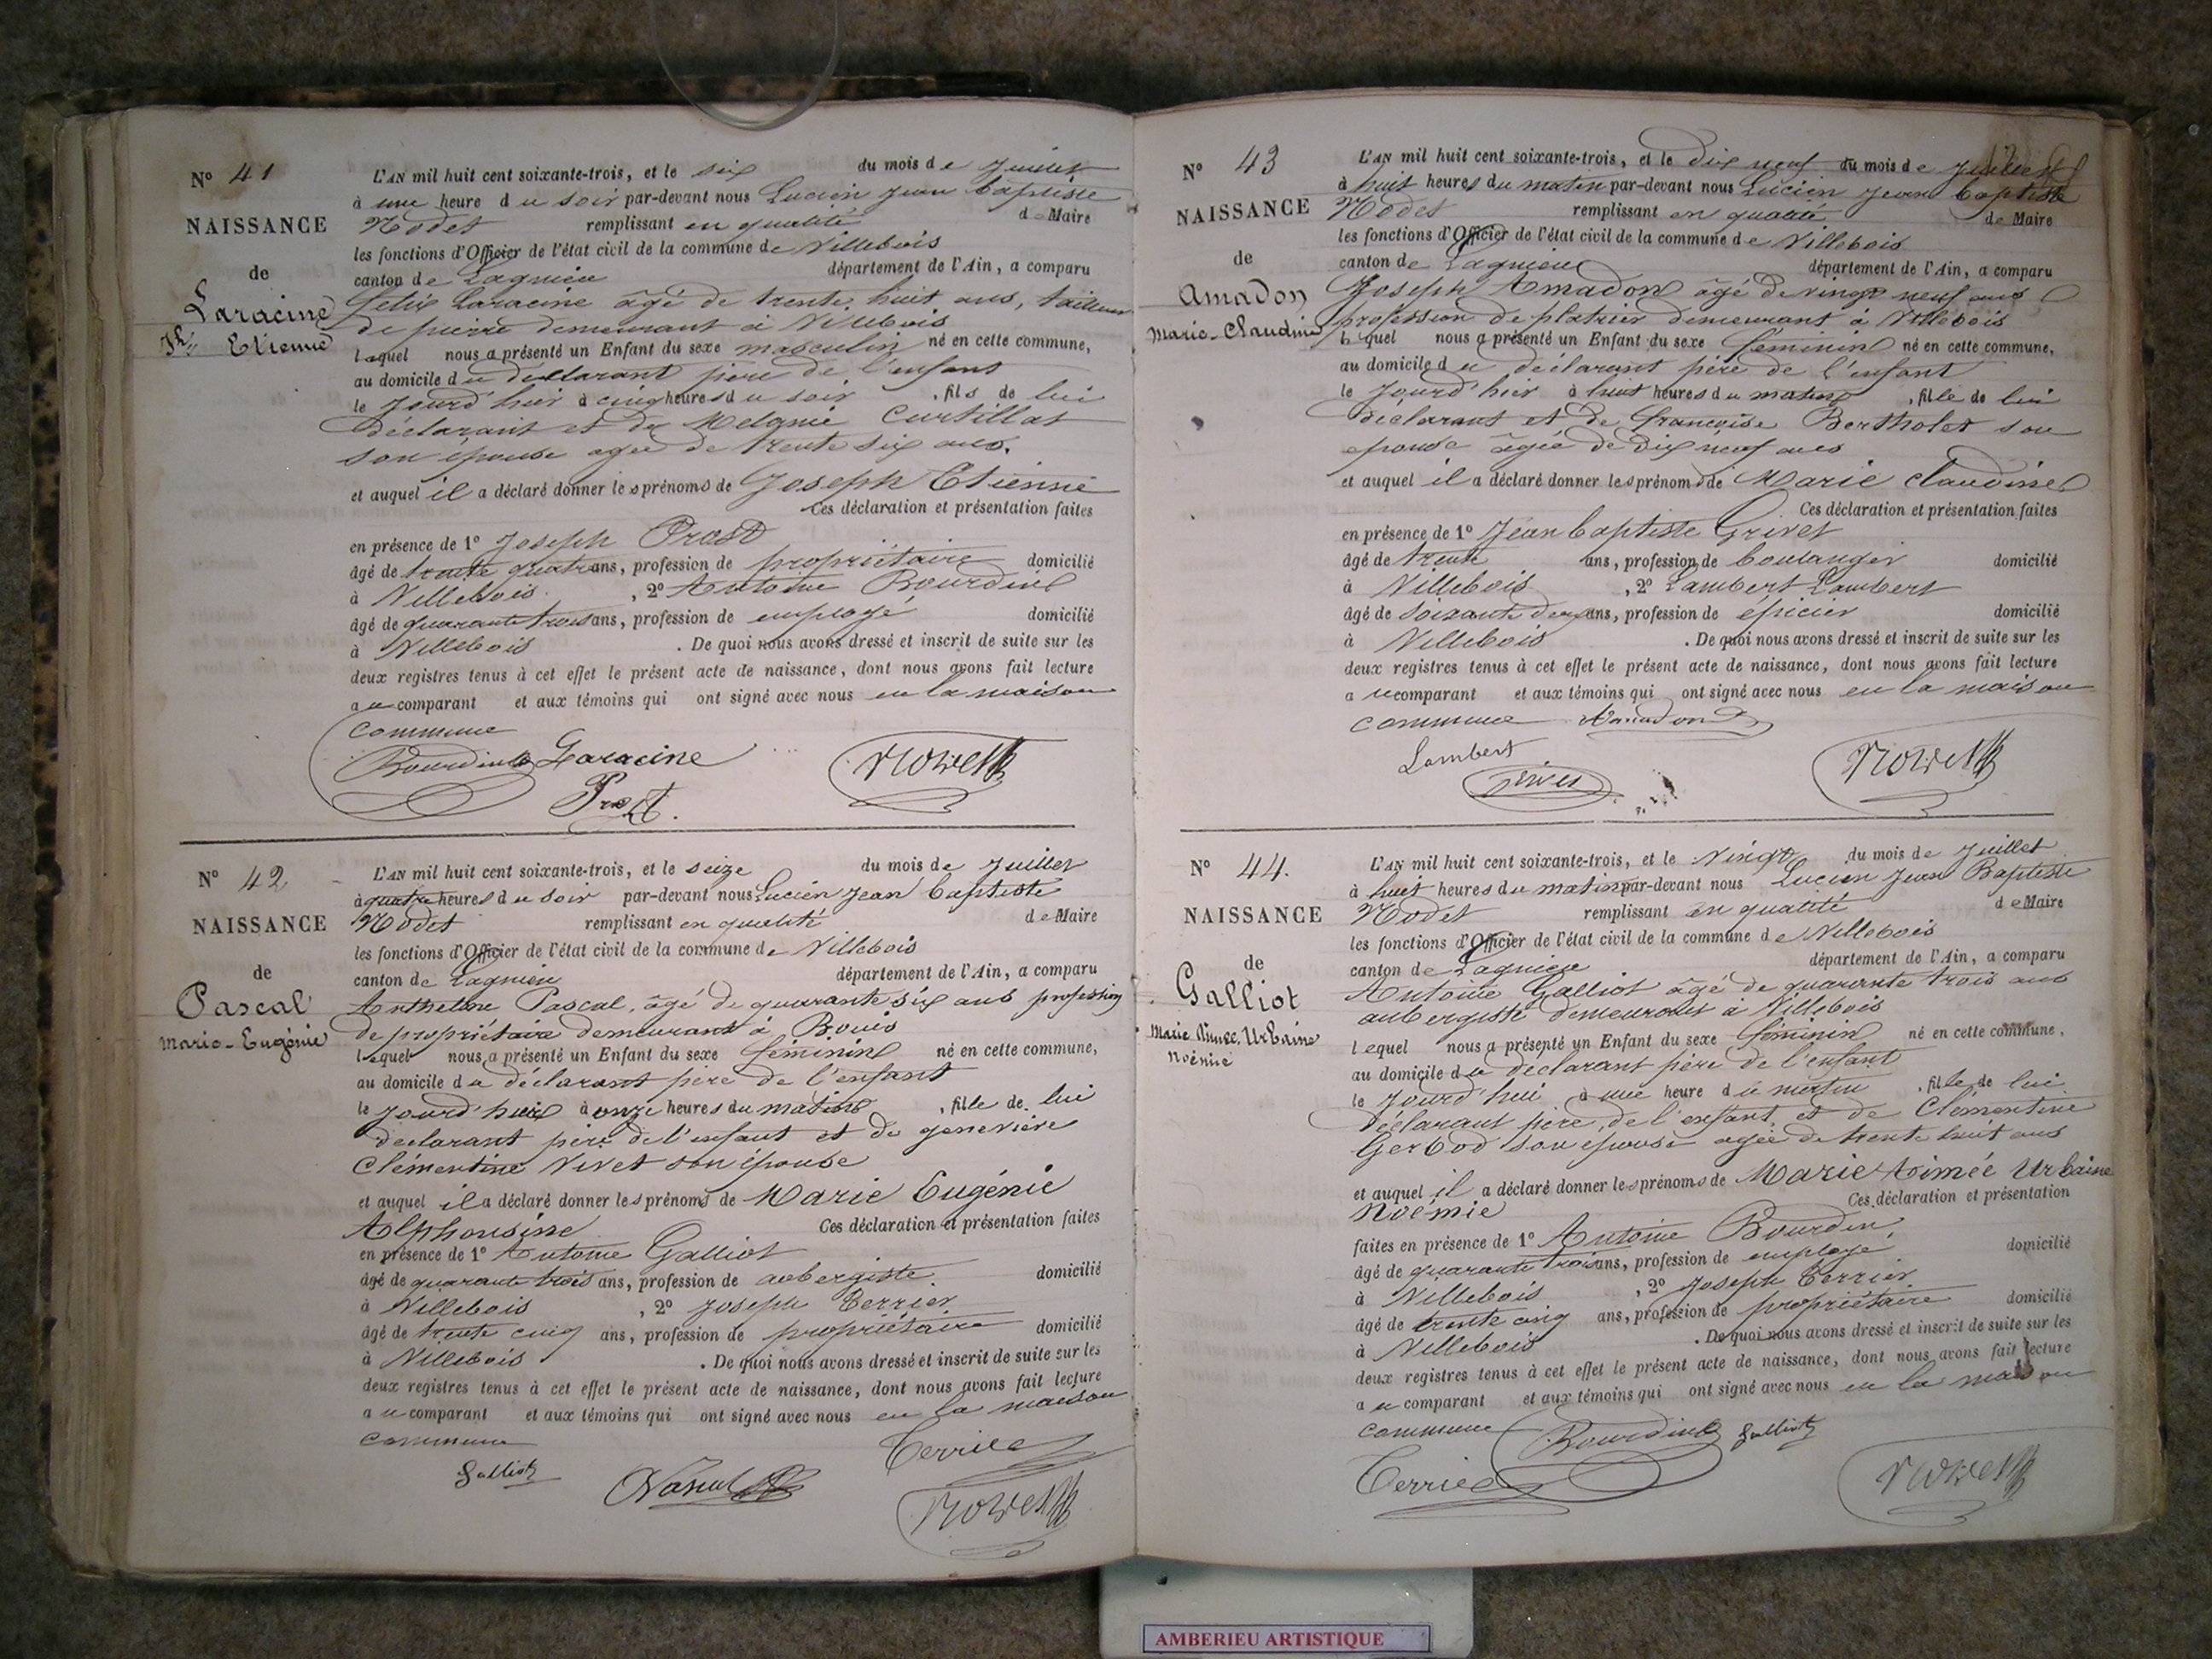 N° 41
NAISSANCE
de
Laracine
Jh Etienne
L'AN mil huit cent soixante-trois, et le six du mois de Juillet
à une heure du soir par-devant nous Lucien Jean baptiste
Nodet remplissant en qualité de Maire
les fonctions d'Officier de l'état civil de la commune de Villebois
canton de Lagnieu département de l'Ain, a comparu
félix Laracine âgé de trente huit ans, tailleur
de pierre demeurant à Villebois
lequel nous a présenté un Enfant du sexe masculin né en cette commune,
au domicile du déclarant père de l'enfant
le jourd'hier à cinq heures du soir , fils de lui
déclarant et de Mélanie Curtillat
son épouse agée de trente six ans.
et auquel il a déclaré donner les prénoms de Joseph Etienne
Ces déclaration et présentation faites
en présence de 1° Joseph Prost
âgé de trente quatre ans, profession de propriétaire domicilié
à Villebois , 2° Antoine Bourdin
âgé de quarante trois ans, profession de employé domicilié
à Villebois . De quoi nous avons dressé et inscrit de suite sur les
deux registres tenus à cet effet le présent acte de naissance, dont nous avons fait lecture
au comparant et aux témoins qui ont signé avec nous en la maison
commune
Bourdin Laracine
Prost.
N° 42
NAISSANCE
de
Pascal
Marie-Eugénie
L'AN mil huit cent soixante-trois, et le seize du mois de Juillet
à quatre heures du soir par-devant nous Lucien Jean baptiste
Nodet remplissant en qualité de Maire
les fonctions d'Officier de l'état civil de la commune de Villebois
canton de Lagnieu département de l'Ain, a comparu
Anthelme Pascal, âgé de quarante six ans profession
de propriétaire demeurant à Bouis
lequel nous a présenté un Enfant du sexe féminin né en cette commune,
au domicile du déclarant père de l'enfant
le jourd'hui à onze heures du matin , fille de lui
déclarant père de l'enfant et de geneviève
Clémentine Vivet son épouse
et auquel il a déclaré donner les prénoms de Marie Eugénie
Alphonsine Ces déclaration et présentation faites
en présence de 1° Antoine Galliot
âgé de quarante trois ans, profession de aubergiste. domicilié
à Villebois , 2° Joseph Terrier
âgé de trente cinq ans, profession de propriétaire domicilié
à Villebois . De quoi nous avons dressé et inscrit de suite sur les
deux registres tenus à cet effet le présent acte de naissance, dont nous avons fait lecture
au comparant et aux témoins qui ont signé avec nous en la maison
commune
Terrier
Galliot Pascal
N° 43
NAISSANCE
de
Amadon
Marie-Claudine
L'AN mil huit cent soixante-trois, et le dix neuf du mois de Juillet
à huit heures du matin par-devant nous Lucien Jean baptiste
Nodet remplissant en qualité de Maire
les fonctions d'Officier de l'état civil de la commune de Villebois
canton de Lagnieu département de l'Ain, a comparu
Joseph Amadon âgé de vingt neuf ans
profession de platrier demeurant à Villebois
lequel nous a présenté un Enfant du sexe féminin né en cette commune,
au domicile du déclarant père de l'enfant
le jourd'hier à huit heures du matin , fille de lui
déclarant et de françoise Bertholet son
épouse âgée de dix neuf ans
et auquel il a déclaré donner les prénoms de Marie Claudine
Ces déclaration et présentation faites
en présence de 1° Jean baptiste Grivet
âgé de trente ans, profession de boulanger domicilié
à Villebois , 2° Lambert Lambert
âgé de soixante deux ans, profession de épicier domicilié
à Villebois . De quoi nous avons dressé et inscrit de suite sur les
deux registres tenus à cet effet le présent acte de naissance, dont nous avons fait lecture
au comparant et aux témoins qui ont signé avec nous en la maison
commune Amadon
Lambert
Grivet
N° 44.
NAISSANCE
de
Galliot
Marie Aimée, Urbaine
Noémie
L'AN mil huit cent soixante-trois, et le vingt du mois de Juillet
à huit heures du matin par-devant nous Lucien Jean Baptiste
Nodet remplissant en qualité de Maire
les fonctions d'Officier de l'état civil de la commune de Villebois
canton de Lagnieu département de l'Ain, a comparu
Antoine Galliot âgé de quarante trois ans
aubergiste demeurant à Villebois
lequel nous a présenté un Enfant du sexe féminin né en cette commune,
au domicile du déclarant père de l'enfant
le jourd'hui à une heure du matin , fille de lui
déclarant père de l'enfant, et de Clémentine
Gerbod son épouse agée de trente huit ans
et auquel il a déclaré donner les prénoms de Marie Aimée Urbaine
Noémie Ces déclaration et présentation
faites en présence de 1° Antoine Bourdin,
âgé de quarante trois ans, profession de employé domicilié
à Villebois , 2° Joseph Terrier
âgé de trente cinq ans, profession de propriétaire domicilié
à Villebois . De quoi nous avons dressé et inscrit de suite sur les
deux registres tenus à cet effet le présent acte de naissance, dont nous avons fait lecture
au comparant et aux témoins qui ont signé avec nous en la maison
commune Bourdin Galliot
Terrier
AMBERIEU ARTISTIQUE